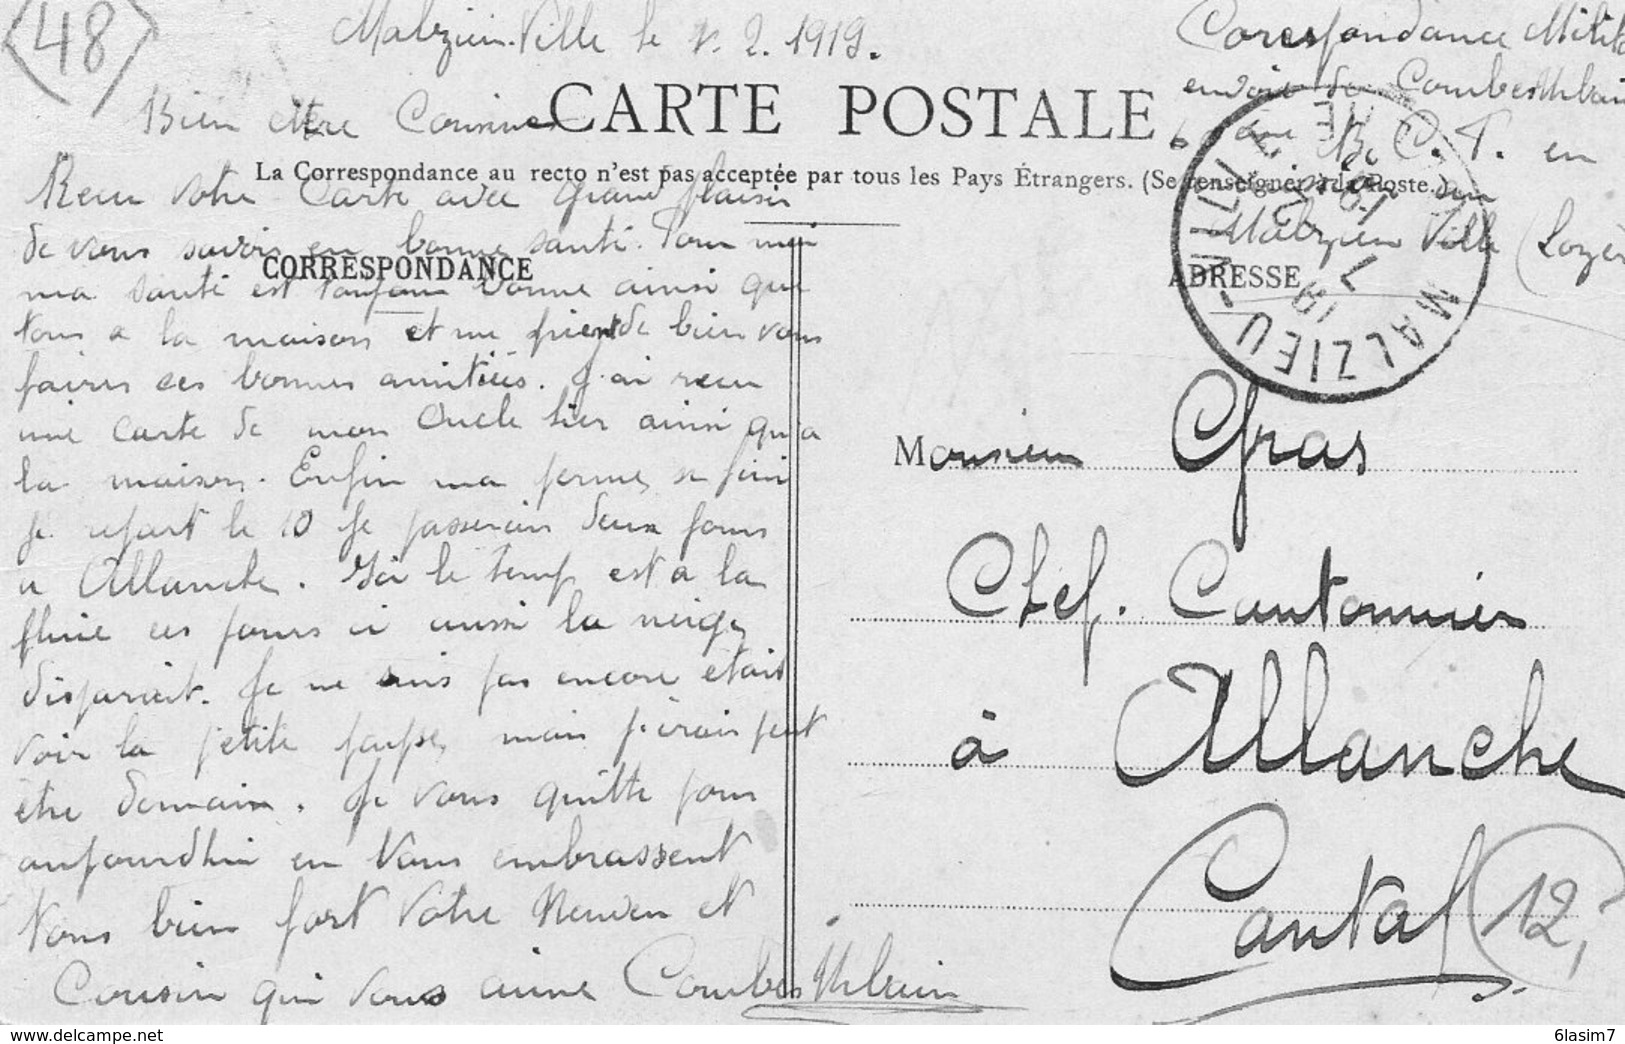 48
Malzieu-Ville le 7. 2. 1919.
Corespondance Milit
envoie de Combes Urbain
B. C. T. en
Malzieu Ville (Lozèr
Bien chère Cousine
CARTE POSTALE
La Correspondance au recto n'est pas acceptée par tous les Pays Étrangers. (Se renseigner à la Poste.)
CORRESPONDANCE
ADRESSE
MALZIEU-VILLE
Reçu votre Carte avec grand plaisir
de vous savoir en bonne santé. Pour moi
ma santé est toujours bonne ainsi que
tous a la maison et me prient de bien vous
faires ces bonnes amitiés. J'ai recu
une carte de mon Oncle hier ainsi qu'a
la maison. Enfin ma perme se fini
je repart le 10 Je passerais deux jours
a Allanche. Ici le temp est a la
pluie ces jours ci aussi la neige
disparait. Je ne suis pas encore était
voir la petite mais j'irais peut
être demain. Je vous quitte pour
aujourdhui en Vous embrassent
Tous bien fort Votre Neuveu et
Cousin qui vous aime Combes Urbain
Monsieur Gras
Chef. Cantonnier
à Allanche
Cantal
12,
delcampe.net
6lasim7